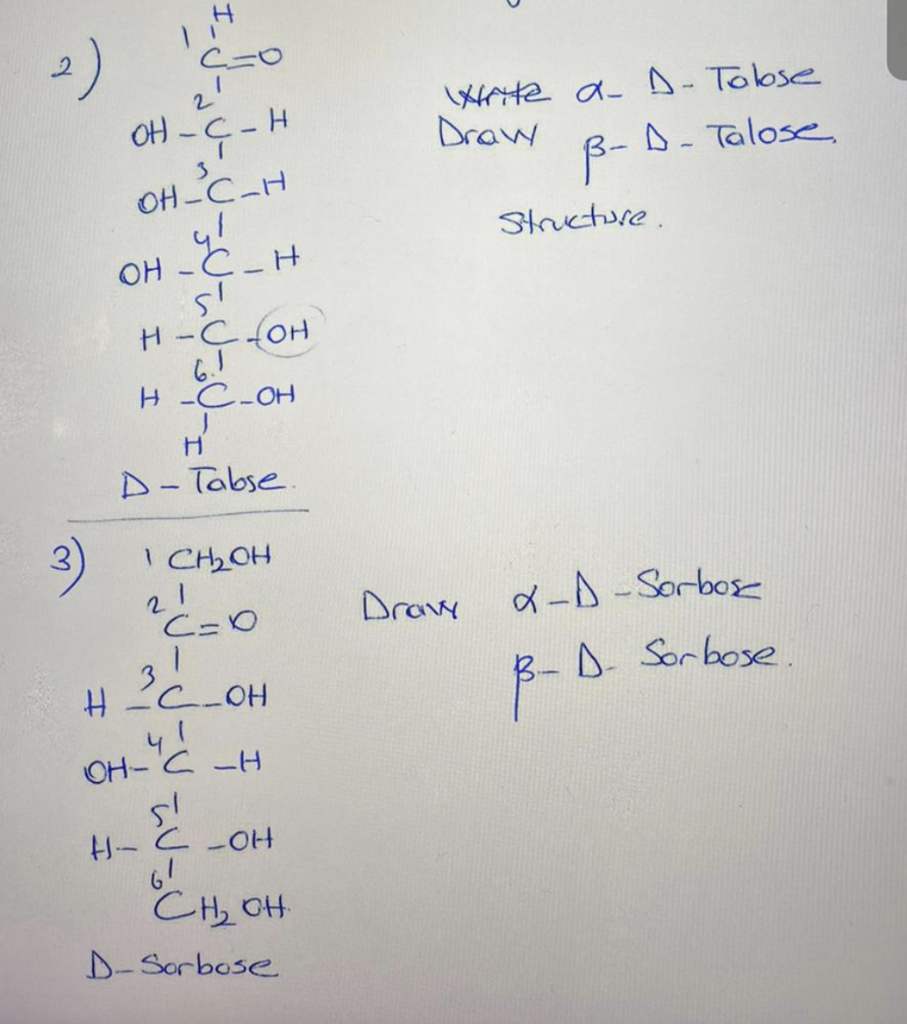 2)
H
1
C=O
2
OH-C-H
3
OH-C-H
4
OH-C-H
5
H-C-OH
6
H-C-OH
H
D-Talose.
Write α- D- Talose
Draw β- D- Talose.
Structure.
3)
1 CH₂OH
2
C=O
3
H-C-OH
4
OH-C-H
5
H-C-OH
6
CH₂OH.
D-Sorbose
Draw α-D-Sorbose
β-D-Sorbose.